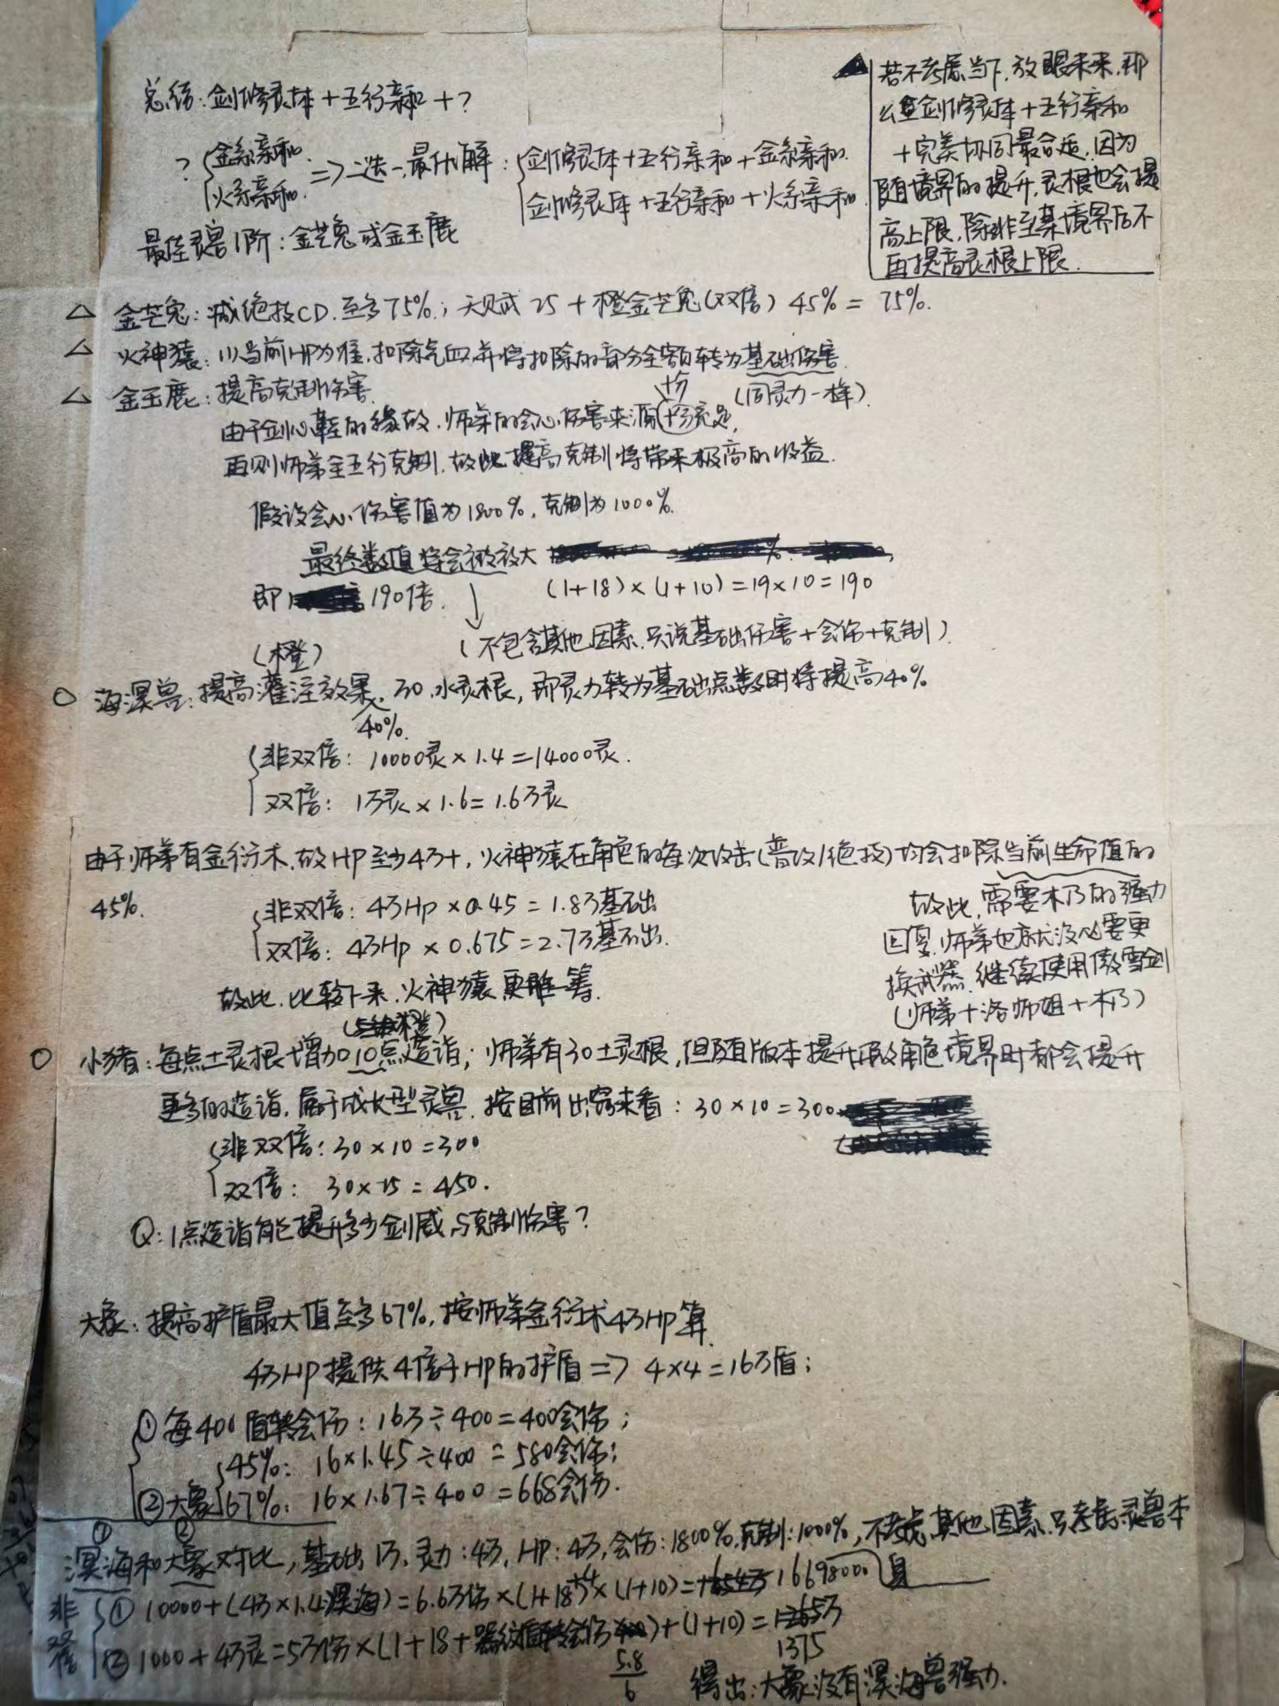 总结：剑修灵体＋五行亲和＋？
？{金系亲和 火系亲和 => 二选一，最优解：{剑修灵体＋五行亲和＋金系亲和
剑修灵体＋五行亲和＋火系亲和
最佳灵兽1阶：金芒兔或金玉鹿
▲若不考虑当下，放眼未来，那
么 剑修灵体＋五行亲和
＋完美协同最合适，因为
随境界的提升，灵根也会提
高上限，除非至某境界后不
再提高灵根上限
△ 金芒兔：减绝技CD，至多75%；天赋 25＋橙金芒兔(双倍) 45%＝75%.
△ 火神猿：以当前HP为准，扣除气血并将扣除的部分全额转为基础伤害
(同灵力一样)
△ 金玉鹿：提高克制伤害
由于剑心 的缘故，师弟的会心伤害来源十分充足，
再则师弟全五行克制，故此提高克制将带来极高的收益.
假设会心伤害值为1800%，克制为1000%
最终数值将会被放大
(1+18)×(1+10)=19×10=190
即 190倍.
(不包含其他因素，只说基础伤害＋会伤＋克制)
(橙)
○ 海溟兽：提高灌注效果，30水灵根，即灵力转为基础点数时将提高40%
40%.
{非双倍：10000灵×1.4=14000灵.
双倍：1万灵×1.6=1.6万灵
由于师弟有金衍术，故HP至少4万+，火神猿在角色的每次攻击(普攻/绝技)均会扣除当前生命值的
45%.
{非双倍：4万HP×0.45=1.8万基础
双倍：4万HP×0.675=2.7万基础.
故此，比较下来，火神猿更胜一筹.
故此，需要木乃的强力
回复，师弟也就没必要更
换武器，继续使用傲雪剑
(师弟＋洛师姐＋木乃)
(橙)
○ 小猪：每点土灵根增加10点造诣；师弟有30土灵根，但随版本提升 角色境界时都会提升
更多的造诣，属于成长型灵兽，按目前出窍来看：30×10=300
{非双倍：30×10=300
双倍：30×15=450.
Q：1点造诣能提升多少剑威与克制伤害？
大象：提高护盾最大值至多67%，按师弟金衍术4万HP算
4万HP提供4倍于HP的护盾 => 4×4=16万盾；
{①每400盾转会伤：16万÷400=400会伤；
②大象{45%：16×1.45÷400=580会伤；
67%：16×1.67÷400=668会伤.
① ②
溟海和大象对比，基础1万，灵力：4万，HP：4万，会伤：1800%，克制：1000%，不考虑其他因素，只考虑灵兽本
身
非双倍
{①10000+(4万×1.4溟海)=6.6万伤×(1+18+4)×(1+10)=16698000
②1000+4万灵=5万伤×(1+18+ 盾转会伤)+(1+10)=
5.8
6
1375
得出：大象没有溟海兽强力.